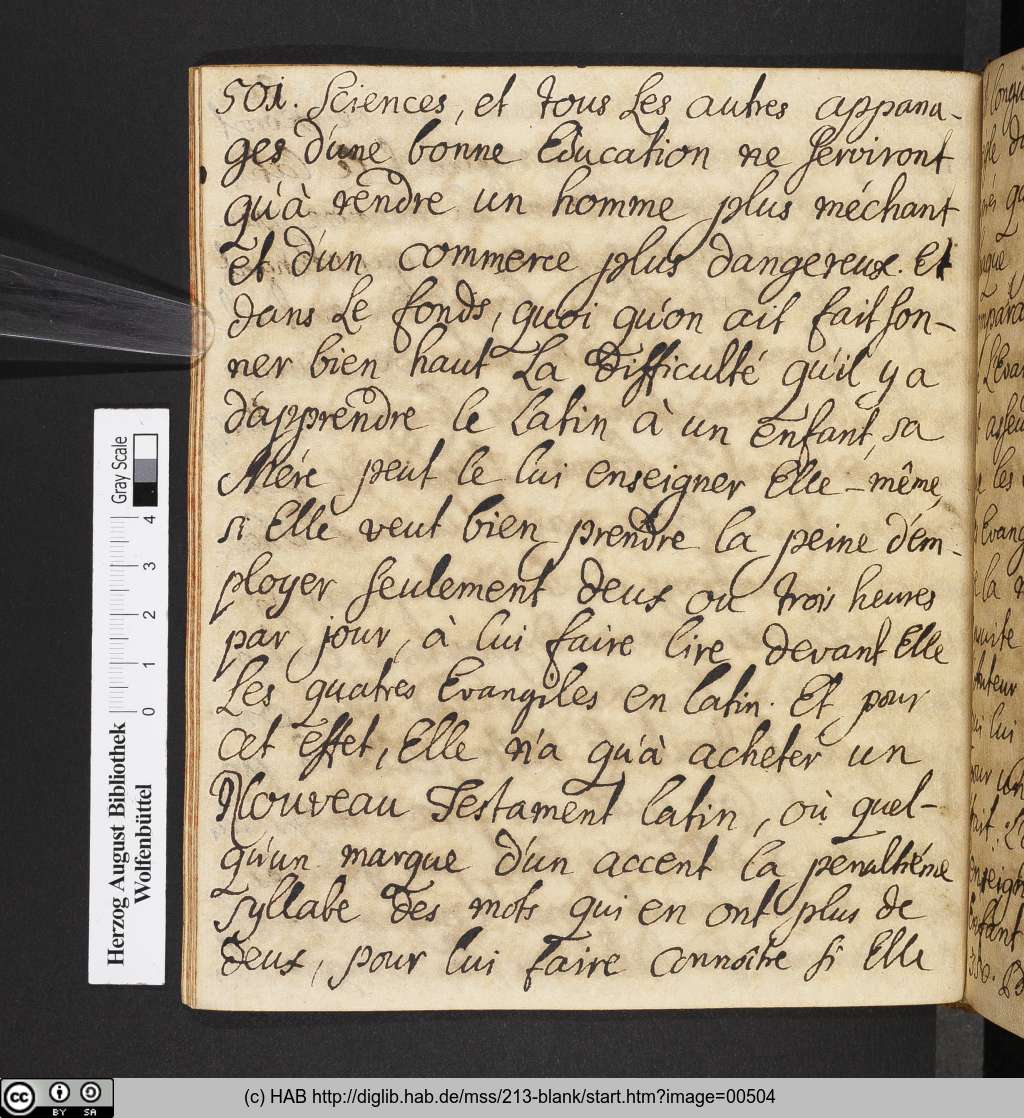 501. Sciences, et tous Les autres appana-
ges d'une bonne Education ne serviront
qu'à rendre un homme plus méchant
et d'un commerce plus dangereux. Et
dans Le fonds, quoi qu'on ait fait son-
ner bien haut La Difficulté qu'il y a
d'apprendre le Latin à un enfant, sa
Mére peut le lui enseigner Elle-même,
si Elle veut bien prendre la peine d'em-
ployer seulement deux ou trois heures
par jour, à lui faire lire devant Elle
Les quatres Evangiles en latin. Et pour
cet effet, Elle n'a qu'à acheter un
Nouveau Testament latin, où quel-
qu'un marque d'un accent la penultiéme
syllabe des mots qui en ont plus de
deux, pour lui faire connoître si Elle
Herzog August Bibliothek
Wolfenbüttel
0 1 2 3 4
Gray Scale
cc BY SA
(c) HAB http://diglib.hab.de/mss/213-blank/start.htm?image=00504